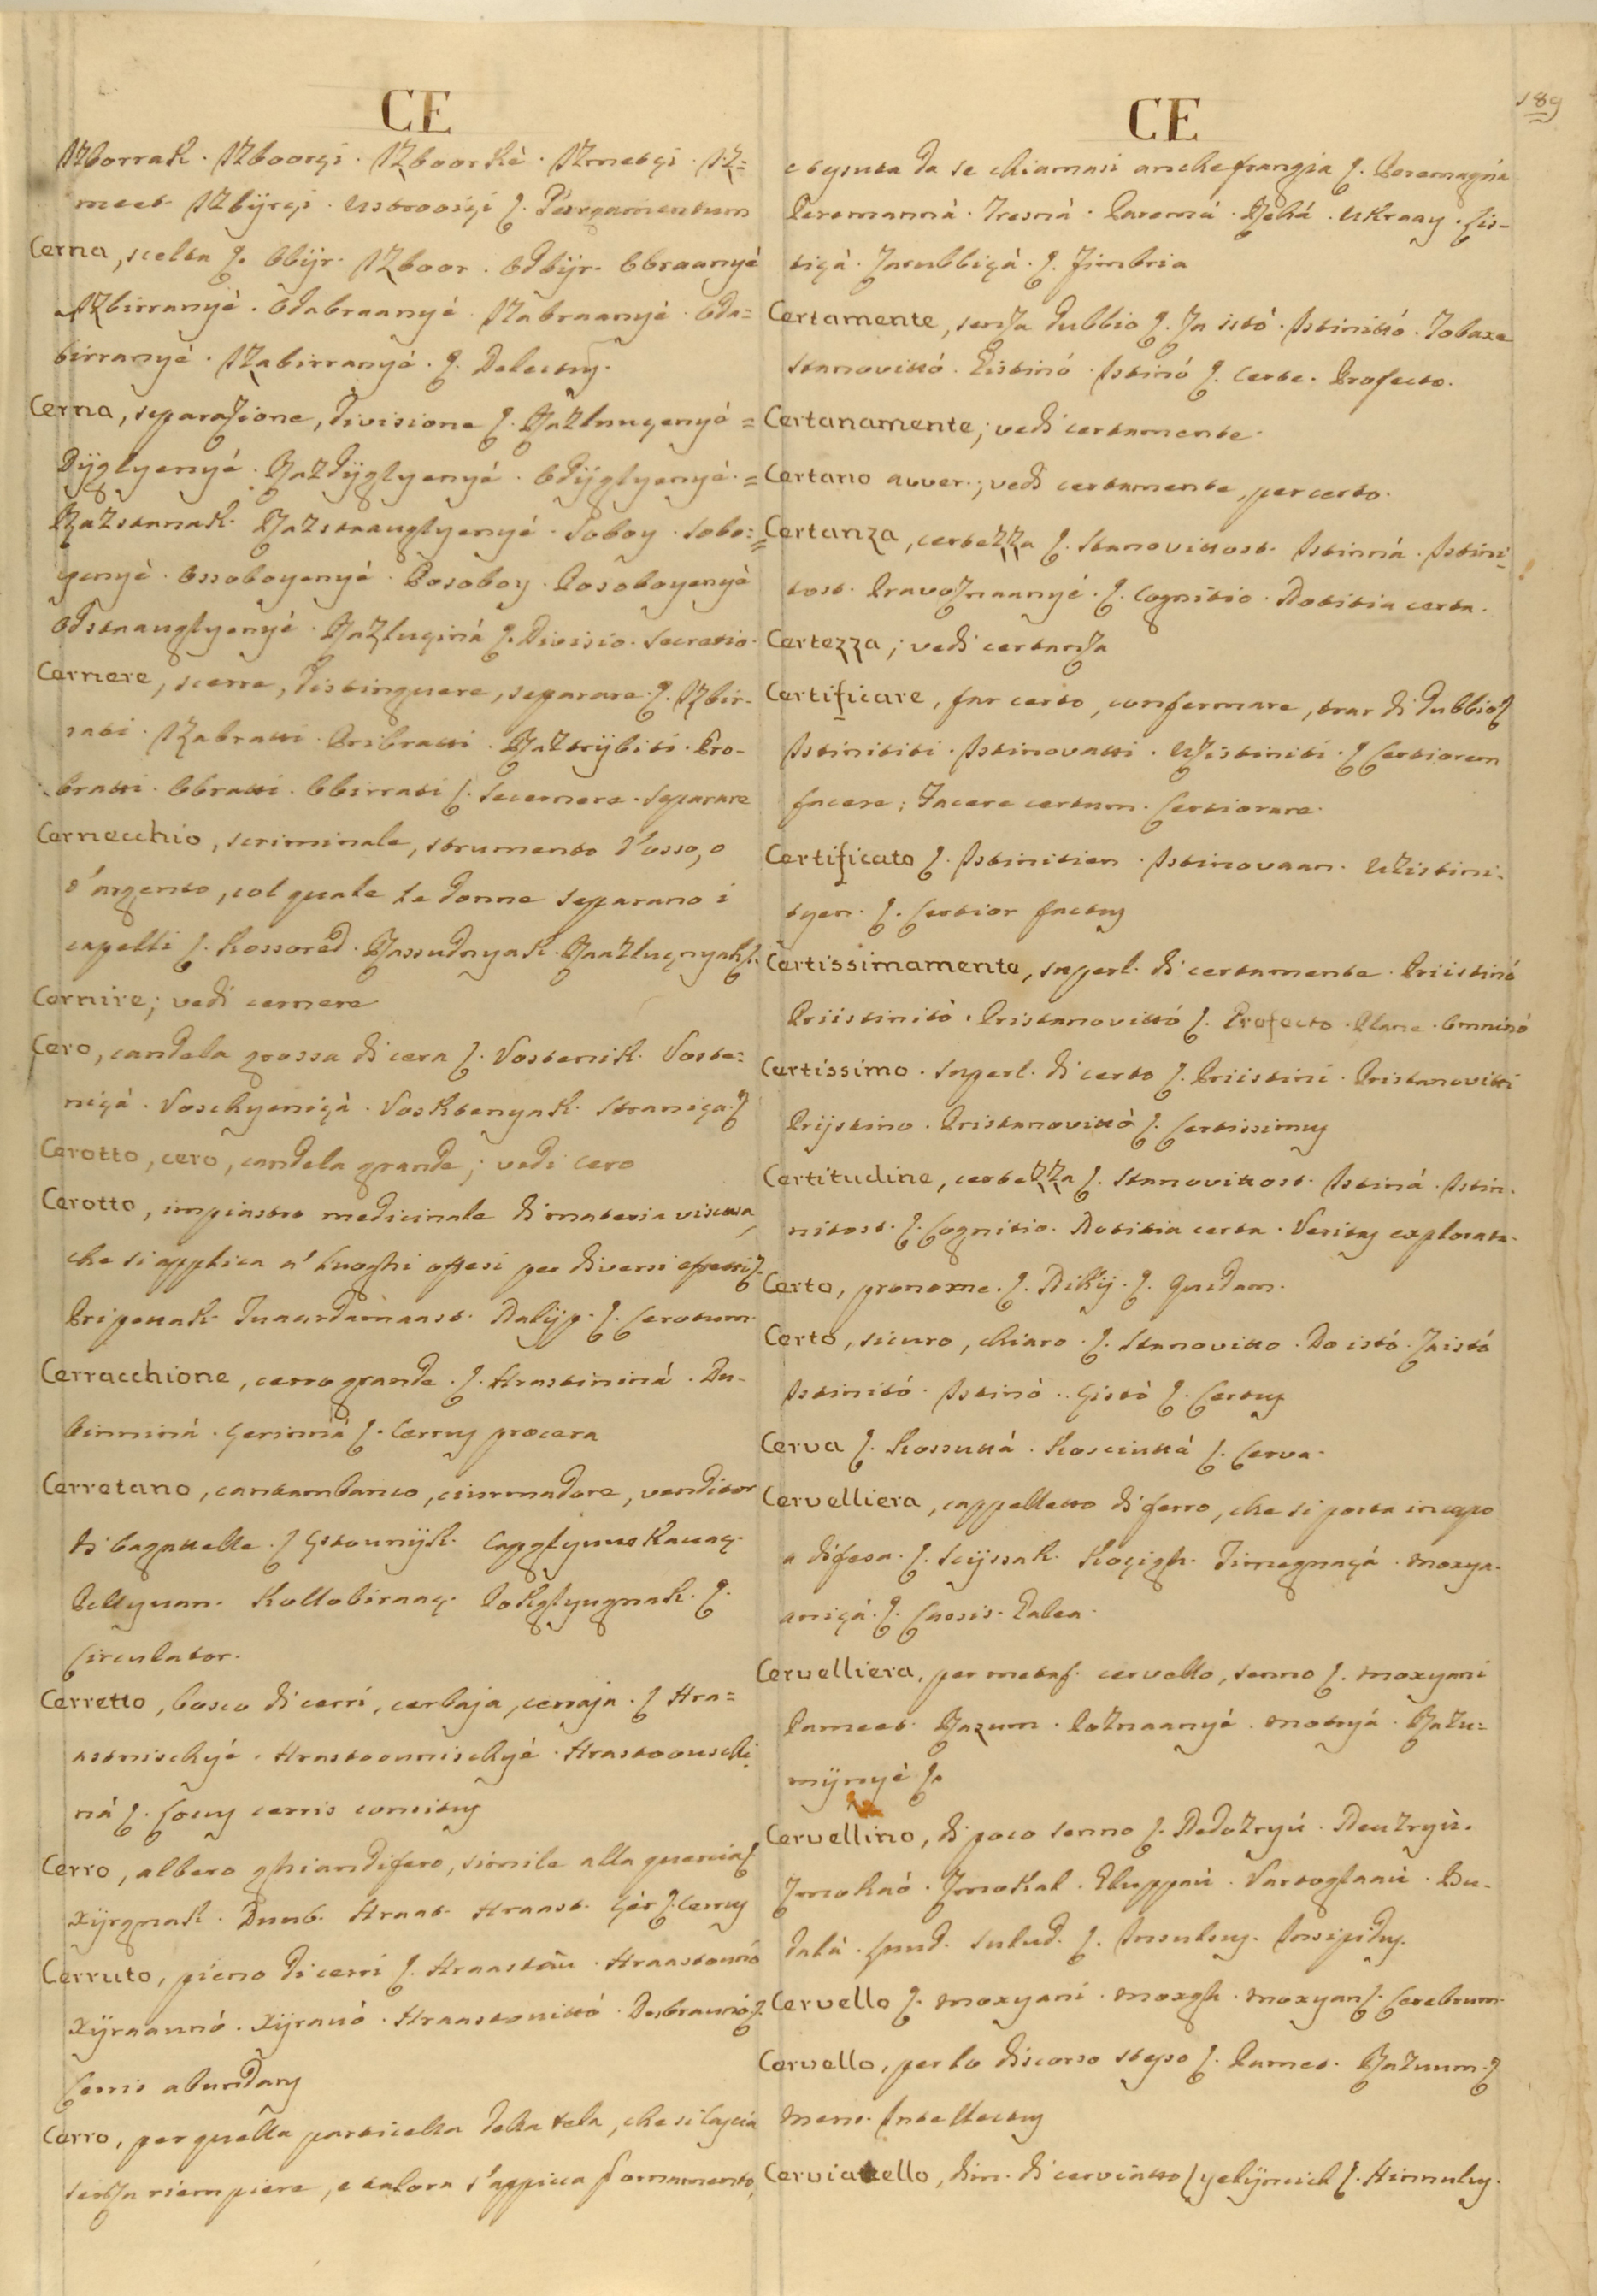 CE
Izborrak. Izboorçi. Izboorké. Izmetçi. Iz=
meet. Izbÿrçi. Ustroosçi ſ. Purgamentum
Cerna, scelta ſ. Obijr. Izboor. Odbijr. Obraanyé
Izbirranyé. Odabraanyé. Izabraanyé. Oda=
birranyé. Izabirranyé. ſ. Delectus.
Cerna, separazione, divisione ſ. Razluuçenyé =
Dÿglyenyé. Razdÿglyenyé. Odÿglyenyé. =
Razstanak. Razstaauglyenyé. Soboy. Sobo: =
yenyé. Ossoboyenyé. Posoboy. Posoboyenyé
Odstaauglyenyé. Razluçiná ſ. Divisio. Secretio.
Cernere, scerre, distinguere, separare. ſ. Izbir-
rati. Izabratti. Pribratti. Raztrÿbiti. Pro-
bratti. Obratti. Obirrati ſ. Secernere. Separare
Cernecchio, scriminale, strumento d'osso, o
d'argento, col quale le donne separano i
capelli ſ. Kossored. Rassudnyak. Raazluçnyak ſ.
Cernire; vedi cernere
Cero, candela grossa di cera ſ. Vostenik. Voste=
niçá. Voschyeniçá. Vosktenyak. Straniça. ſ
Cerotto, cero, candela grande; vedi cero
Cerotto, impiastro medicinale di materia viscosa,
che si applica a' luoghi offesi per diversi effetti ſ.
Pripouak. Tuaardamaast. Nalÿp. ſ. Cerotum.
Cerracchione, cerro grande. ſ. Hrastininá. Du-
binniná. Çerinná ſ. Cerrus procera
Cerretano, cantambanco, ciurmadore, venditor
di bagattelle. ſ Çtounÿk. Capglyuuskauaç.
Pellyuan. Kollobiraaç. Pokglyugnak. ſ.
Circulator.
Cerretto, bosco di cerri, cerbaja, cerraja. ſ Hra=
astnischyé. Hrastoounischyé. Hrastoouschi
ná ſ. Locus cerris consitus
Cerro, albero ghiandifero, simile alla quercia ſ.
Xÿrgnak. Duub. Hraat. Hraast. Çér ſ. Cerrus
Cerruto, pieno di cerri ſ. Hraastàu. Hraastounó
Xÿraaunó. Xÿrauó. Hraastouittó. Dubraunó ſ.
Cerris abundans
Cerro, per quella particella della tela, che si lascia
senza riempiere, e talora s'appicca p ornamento,
CE
189
e tessuta da se chiamasi anche frangia ſ. Peremagná
Peremanná. Tresná. Paremá. Reká. Ukraay. Cis-
tiçá. Zarubbiçá. ſ. Fimbria
Certamente, senza dubbio ſ. Za istó. Istinittó. Tobaxe
Stanovittó. Eistinó. Istinó ſ. Certe. Profecto.
Certanamente; vedi certamente.
Certano avver.; vedi certamente, per certo.
Certanza, certezza ſ. Stanovittost. Istinná. Istini-
tost. Pravoznaanyé. ſ. Cognitio. Notitia certa.
Certezza; vedi certanza
Certificare, far certo, confermare, trar di dubbio ſ
Istinititi. Istinovatti. Uzistiniti. ſ Certiorem
facere; Facere certum. Certiorare.
Certificato ſ. Istinitien. Istinovaan. Uzistini-
tyen. ſ. Certior factus
Certissimamente, superl. di certamente. Priistinó
Priistinitó. Pristanovittó ſ. Profecto. Plane. Omninó
Certissimo. superl. di certo ſ. Priistini. Pristanovitti
Prijstino. Pristanovittó ſ. Certissimus
Certitudine, certezza ſ. Stanovittost. Istiná. Istin-
nitost. ſ. Cognitio. Notitia certa. Veritas explorata.
Certo, pronome. ſ. Nikij. ſ. Quidam.
Certo, sicuro, chiaro. ſ. Stanovitto. Do istó. Zaistó
Istinitó. Istinó. Çistó ſ. Certus
Cerva ſ. Kossuttá. Kosciuttá ſ. Cerva.
Cervelliera, cappelletto di ferro, che si porta in capo
a difesa. ſ. Scijssak. Koçigh. Timegnaçá. Moxya-
aniçá. ſ. Cassis. Galea.
Cervelliera, per metaf. cervello, senno ſ. Moxyani
Pameet. Razum. Poznaanyé. Motryá. Razu=
mÿnyé ſ.
Cervellino, di poco senno ſ. Nedozryú. Neuzryú.
Smokaó. Smokal. Gluppaú. Vartoglaaú. Bu-
dalá. Luud. Sulud. ſ. Insulsus. Insipidus.
Cervello ſ. Moxyani. Moxgh. Moxyan ſ. Cerebrum.
Cervello, per lo discorso stesso ſ. Pamet. Razuum. ſ
Mens. Intellectus
Cerviattello, dim. di cerviatto ſ yelÿncich ſ. Hinnulus.